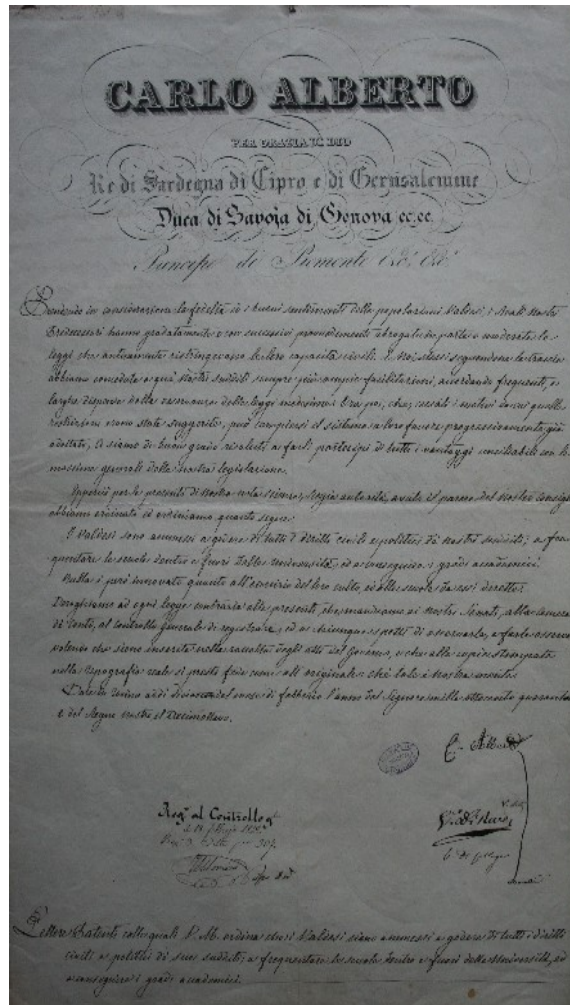 CARLO ALBERTO
PER GRAZIA DI DIO
Re di Sardegna di Cipro e di Gerusalemme
Duca di Savoja di Genova ec. ec.
Principe di Piemonte
Prendendo in considerazione la fedeltà ed i buoni sentimenti delle popolazioni Valdesi, i Reali Nostri
Predecessori hanno gradatamente e con successivi provvedimenti abrogate in parte o moderate le
leggi che anticamente restringevano le loro capacità civili. E Noi stessi seguendone le traccie
abbiamo concedute a que' Nostri sudditi sempre più ampie facilitazioni, accordando frequenti, e
larghe dispense dalla osservanza delle leggi medesime. Ora poi, che, cessati i motivi da cui quelle
restrizioni erano state suggerite, può compiersi il sistema a loro favore progressivamente già
adottato, Ci siamo di buon grado risoluti a farli partecipi di tutti i vantaggi conciliabili con le
massime generali della nostra legislazione.
Epperciò per le presenti di Nostra certa scienza, Regia autorità, avuto il parere del Nostro Consiglio
abbiamo ordinato ed ordiniamo quanto segue:
I Valdesi sono ammessi a godere di tutti i diritti civili e politici de' nostri sudditi; a fre
quentare le scuole dentro e fuori delle Università, ed a conseguire i gradi accademici.
Nulla è però innovato quanto all'esercizio del loro culto, ed alle scuole da essi dirette.
Deroghiamo ad ogni legge contraria alle presenti, che mandiamo ai Nostri Senati, alla Camera
de' Conti, al Controllo Generale di registrare, ed a chiunque spetti di osservarle, e farle osservare
volendo che siano inserite nella raccolta degli atti del Governo, e che alle copie stampate
nella tipografia reale si presti fede come all'originale: chè tale è nostra mente.
Date in Torino addì diciassette del mese di febbraio l'anno del Signore mille ottocento quarantotto
e del Regno nostro il Decimottavo.
C. Alberto
Reg.to al Controllo g.le
Lettere Patenti colle quali V. M. ordina che i Valdesi siano ammessi a godere di tutti i diritti
civili e politici di suoi sudditi; a frequentare le scuole dentro e fuori delle Università, ed
a conseguire i gradi accademici.